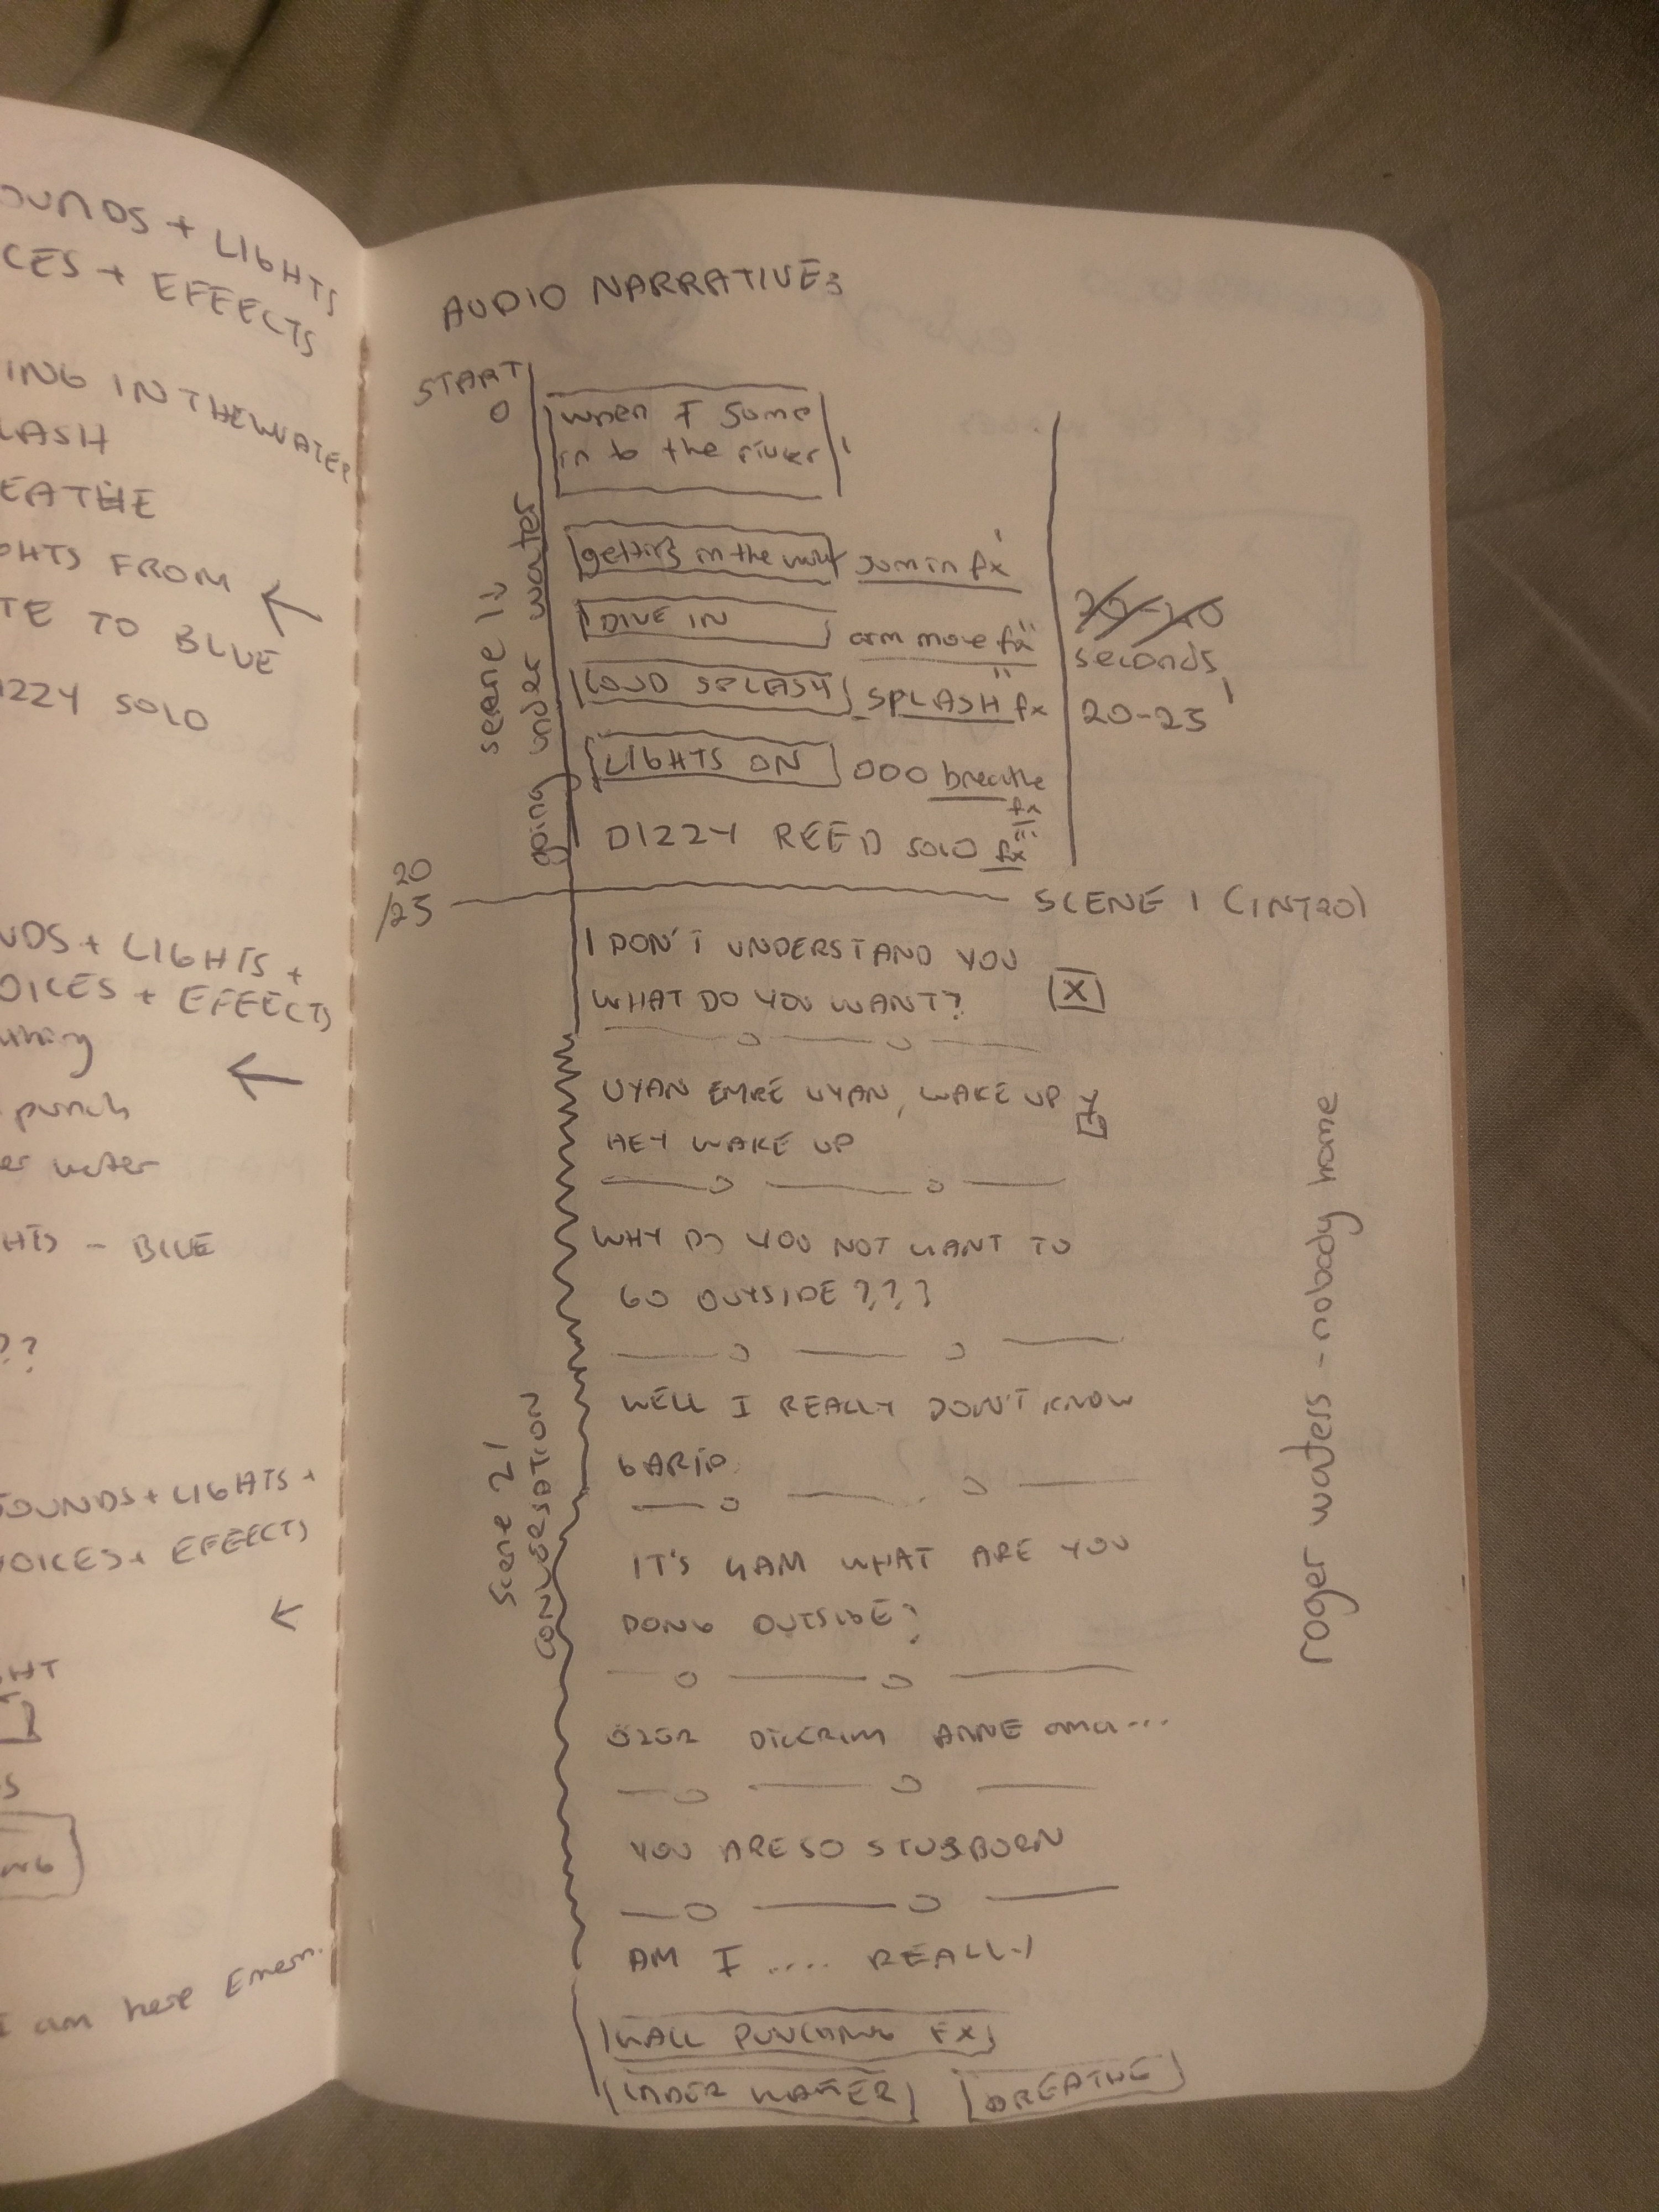 OUNDS + LIGHTS
CES + EFEECTS
ING IN THE WATER
LASH
EATHE
GHTS FROM
TE TO BLUE
IZZY SOLO
NDS + LIGHTS +
OICES + EFEECTS
punch
er water
HTS - BLUE
??
SOUNDS + LIGHTS +
VOICES + EFEECTS
HT
I am here Emrem.
AUDIO NARRATIVE:
START
0
when I Jump
in to the river
scene 1:
going under water
getting in the water jumin fx
DIVE IN arm move fx
LOUD SPLASH SPLASH fx
seconds
20-25
LIGHTS ON 000 breathe
fx
DIZZY REED SOLO fx
20
/25
SCENE 1 (INTRO)
I DON'T UNDERSTAND YOU
WHAT DO YOU WANT? X
UYAN EMRE UYAN, WAKE UP
HEY WAKE UP
WHY DO YOU NOT WANT TO
GO OUTSIDE???
WELL I REALLY DON'T KNOW
GARİP
scene 2:
CONVERSATION
IT'S 4AM WHAT ARE YOU
DONG OUTSIDE?
ÖZÜR DİLERİM ANNE ama...
YOU ARE SO STUBBORN
AM I .... REALLY
WALL PUNCHING FX
UNDER WATER BREATHE
roger waters - nobody home